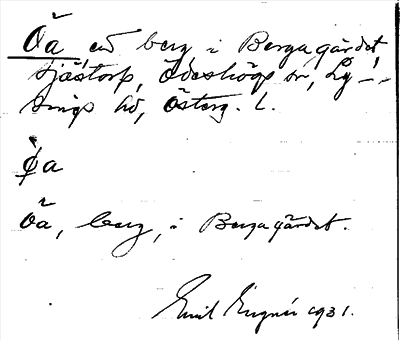 Öa ett berg i Bergagärdet
Sjöstorp, Ödeshögs sn, Ly-
sings hd, Österg. l.
Öa, berg, i Bergagärdet.
Emil 1931.